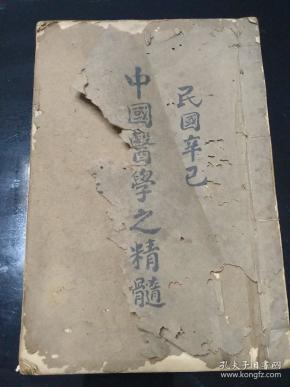 民國辛巳
中國醫學之精髓
孔夫子旧书网
kongfz.com